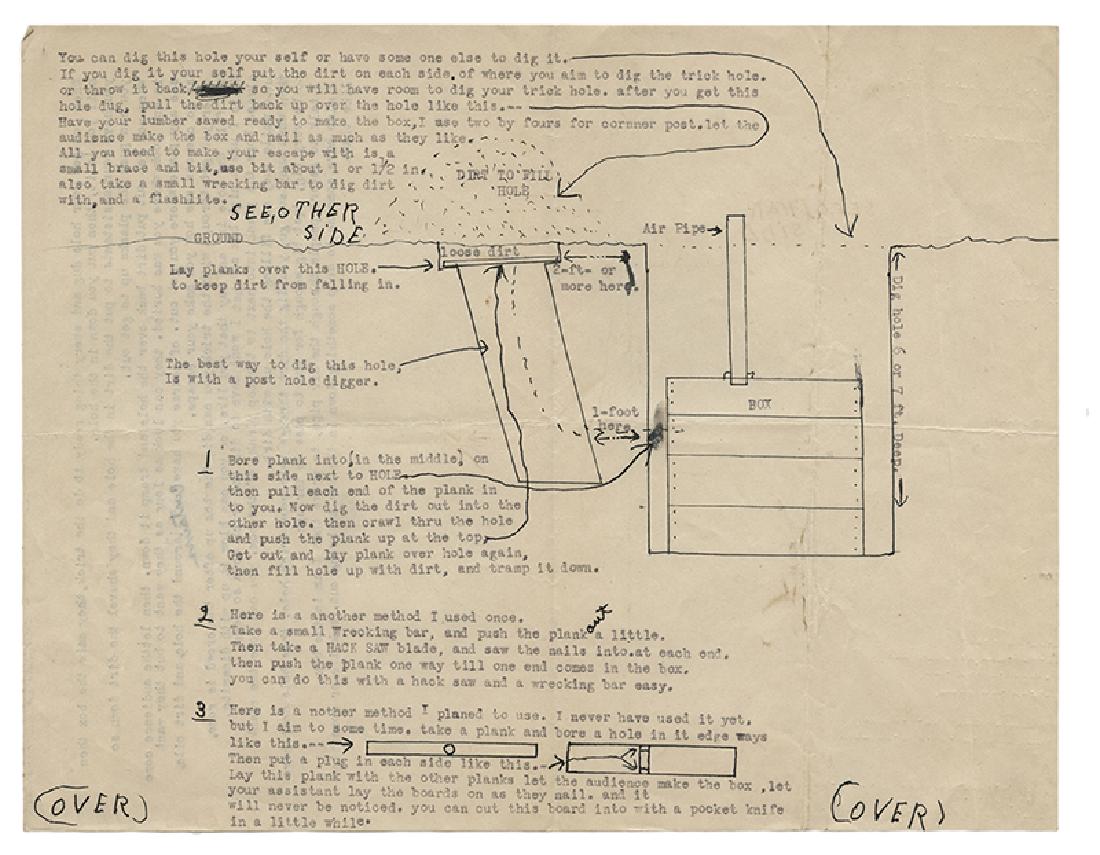 You can dig this hole your self or have some one else to dig it.
If you dig it your self put the dirt on each side.of where you aim to dig the trick hole.
or throw it back so you will have room to dig your trick hole. after you get this
hole dug, pull the dirt back up over the hole like this.--
Have your lumber sawed ready to make the box,I use two by fours for cornner post.let the
audience make the box and nail as much as they like.
All you need to make your escape with is a
small brace and bit,use bit about 1 or 1/2 in.
also take a small wrecking bar to dig dirt
with,and a flashlite.
DIRT TO FILL
HOLE
SEE, OTHER
SIDE.
GROUND
Air Pipe
loose dirt
Lay planks over this HOLE.
to keep dirt from falling in.
2-ft- or
more here.
Dig hole 6 or 7 ft. Deep.
The best way to dig this hole,
Is with a post hole digger.
BOX
1-foot
here
1 Bore plank into(in the middle) on
this side next to HOLE
then pull each end of the plank in
to you. Now dig the dirt out into the
other hole. then crawl thru the hole
and push the plank up at the top,
Get out and lay plank over hole again,
then fill hole up with dirt, and tramp it down.
2 Here is a another method I used once.
Take a small Wrecking bar, and push the plank out a little.
Then take a HACK SAW blade, and saw the nails into.at each end.
then push the plank one way till one end comes in the box.
you can do this with a hack saw and a wrecking bar easy.
3 Here is a nother method I planed to use. I never have used it yet.
but I aim to some time. take a plank and bore a hole in it edge ways
like this.--
Then put a plug in each side like this.-
Lay this plank with the other planks let the audience make the box ,let
your assistant lay the boards on as they nail. and it
will never be noticed. you can cut this board into with a pocket knife
in a little while.
(OVER)
(OVER)